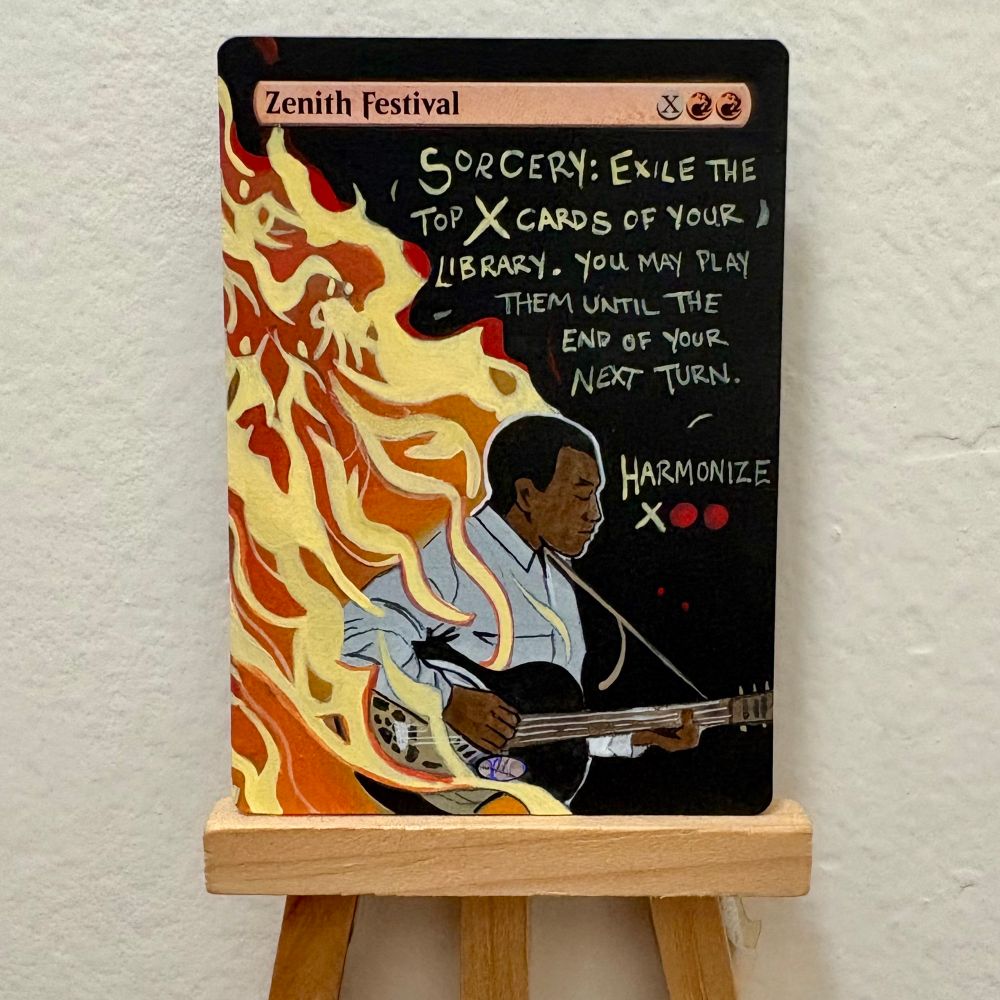 Zenith Festival X
SORCERY: EXILE THE
TOP X CARDS OF YOUR
LIBRARY. YOU MAY PLAY
THEM UNTIL THE
END OF YOUR
NEXT TURN.
HARMONIZE
X